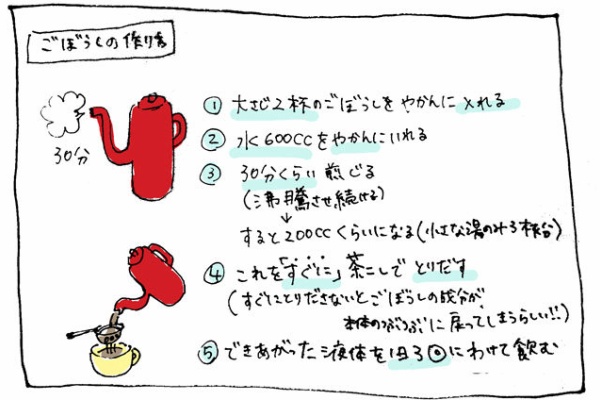 ごぼうしの作り方
① 大さじ2杯のごぼうしをやかんに入れる
② 水600CCをやかんにいれる
30分
③ 30分くらい煎じる
(沸騰させ続ける)
↓
すると200CCくらいになる(小さな湯のみ3杯台)
④ これを「すぐに」茶こしでとりだす
(すぐにとりださないとごぼうしの成分が
本体のつぶつぶに戻ってしまうらしい!!)
⑤ できあがった液体を1日3回にわけて飲む